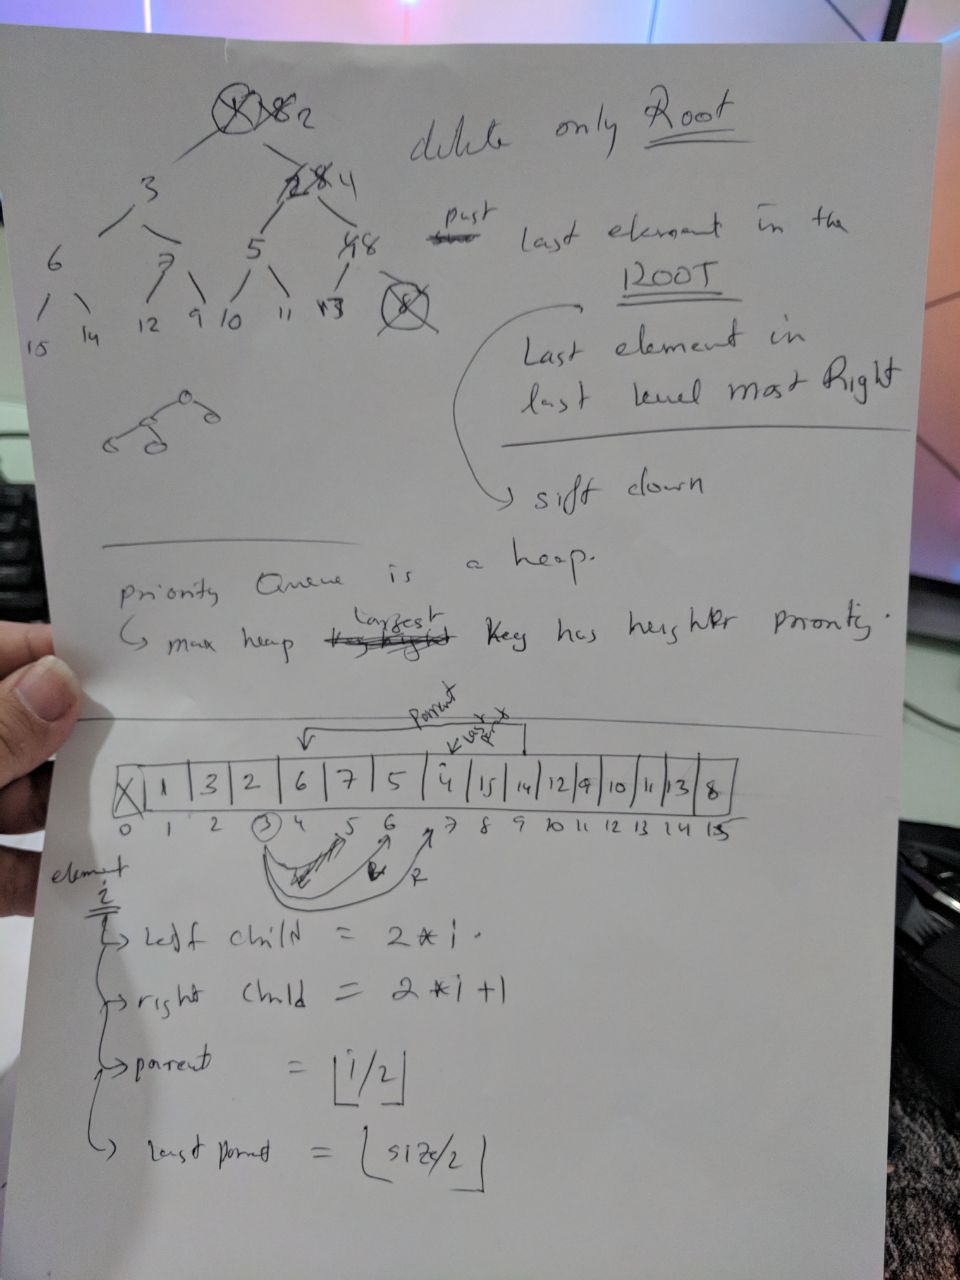 1 8 2
delete only Root
3 2 8 4
past Last element in the
ROOT
6 7 5 4 8
15 14 12 9 10 11 13 8
Last element in
last level most Right
sift down
Priority Queue is a heap.
max heap Largest Key has heighter priority.
Parrent
Last
X 1 3 2 6 7 5 4 15 14 12 9 10 11 13 8
0 1 2 3 4 5 6 7 8 9 10 11 12 13 14 15
R
element
i
Left child = 2*i.
right child = 2*i+1
parent = ⌊i/2⌋
last parent = ⌊size/2⌋